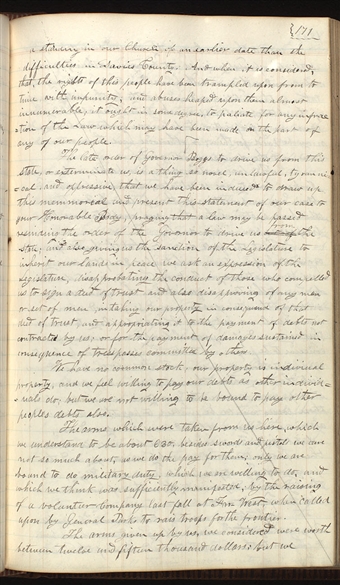 171
a standing in our Church of an earlier date than the
difficulties in Daviess County. And when it is considered,
that, the rights of this people have been trampled upon from to
time with impunity; and abuses heaped upon them almost
innumerable, it ought in some degree, to palliate for any infrac
tion of the Law which may have been made on the part of
any of our people.
The late order of Governor Boggs to drive us from this
state, or exterminate us, is a thing so novel, unlawful, tyranni
cal and oppressive, that we have been induced to draw up
this memmoreal and present this statement of our case to
your Honorable Body, praying that a law may be passed
rescinding the order of the Governor to drive us from the
state, and also giving us the sanction of the Legislature to
inherit our lands in peace, we ask an expression of the
Legislature, disapprobating the conduct of those who compelled
us to sign a deed of trust and also disapproving of any man
or set of men, in taking our property in consequence of that
deed of trust, and appropriating it to the payment of debts not
contracted by us; or for the payment of damages sustained in
consequence of tresspasses committed by others.
We have no common stock, our property is individual
property, and we feel willing to pay our debts as other individu
als do, but we are not willing to be bound to pay other
peoples debts also.
The arms which were taken from us here, which
we understand to be about 630, besides swords and pistols we care
not so much about, as we do the pay for them; only we are
bound to do military duty, which we are willing to do, and
which we think was sufficiently manifested, by the raising
of a volunteer Company last fall at Far West, when called
upon by General Parks to rais troops for the frontier.
The arms given up by us, we considered were worth
between twelve and fifteen thousand dollars; but we